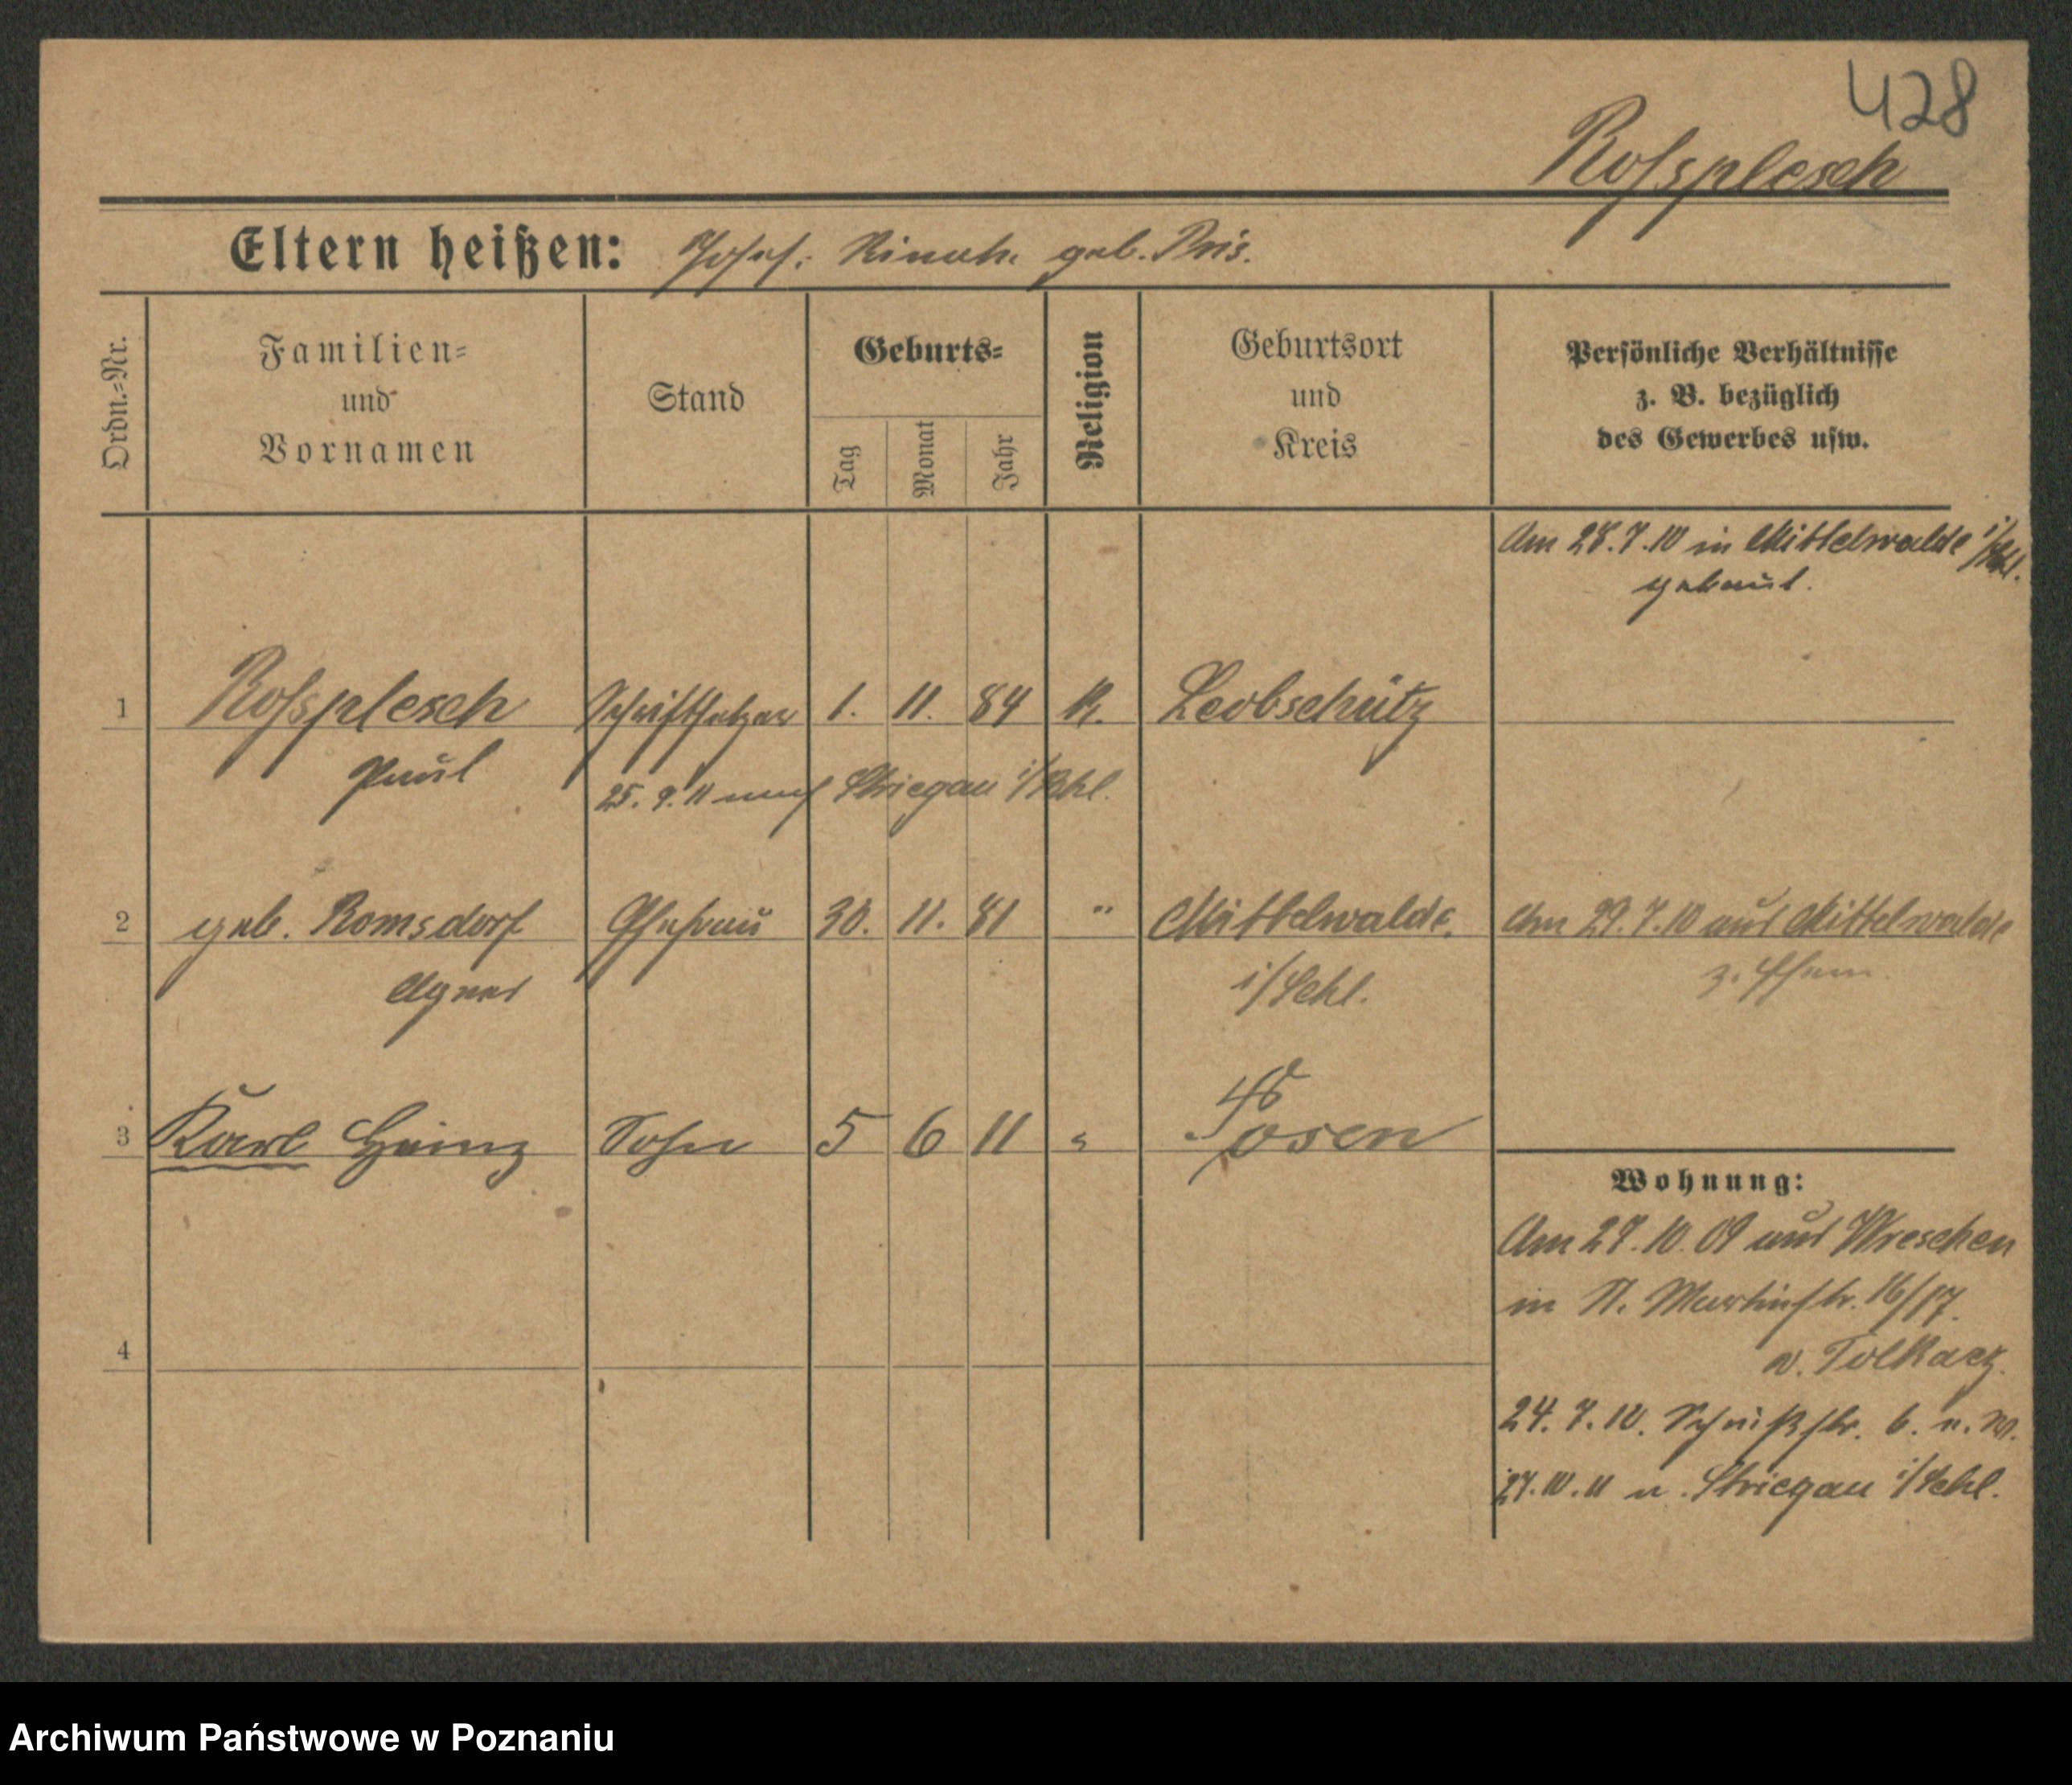 428
Roſsplesch
Eltern heißen: Josef. geb.
Ordn.=Nr.
Familien= und Vornamen
Stand
Geburts=
Tag
Monat
Jahr
Religion
Geburtsort und Kreis
Persönliche Verhältnisse
z. B. bezüglich
des Gewerbes usw.
Am 28.7.10 in Mittelwalde i/Schl.
getraut.
1 Roſsplesch Schriftsetzer 1. 11. 84 K. Leobschütz
Paul
25. 9. 11 nach Striegau i/Schl.
2 geb. Romsdorf Ehefrau 30. 11. 81 " Mittelwalde. Am 29.7.10 aus Mittelwalde
Agnes i/Schl. z. Ehem.
3 Karl Heinz Sohn 5 6 11 " Posen
Wohnung:
Am 27.10.09 aus Wreschen
in St. Martinstr. 16/17.
4
b. Tolkacz.
24.7.10. 6.
27.10.11 n. Striegau i/Schl.
Archiwum Państwowe w Poznaniu